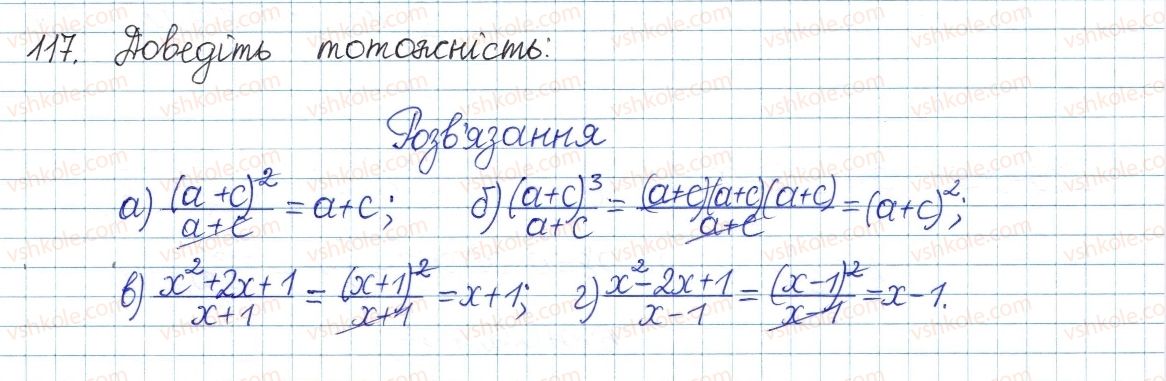 117. Доведіть тотожність:
Розв'язання
а) (a+c)²/(a+c) = a+c; б) (a+c)³/(a+c) = (a+c)(a+c)(a+c)/(a+c) = (a+c)²;
в) (x²+2x+1)/(x+1) = (x+1)²/(x+1) = x+1; г) (x²-2x+1)/(x-1) = (x-1)²/(x-1) = x-1.
vshkole.com